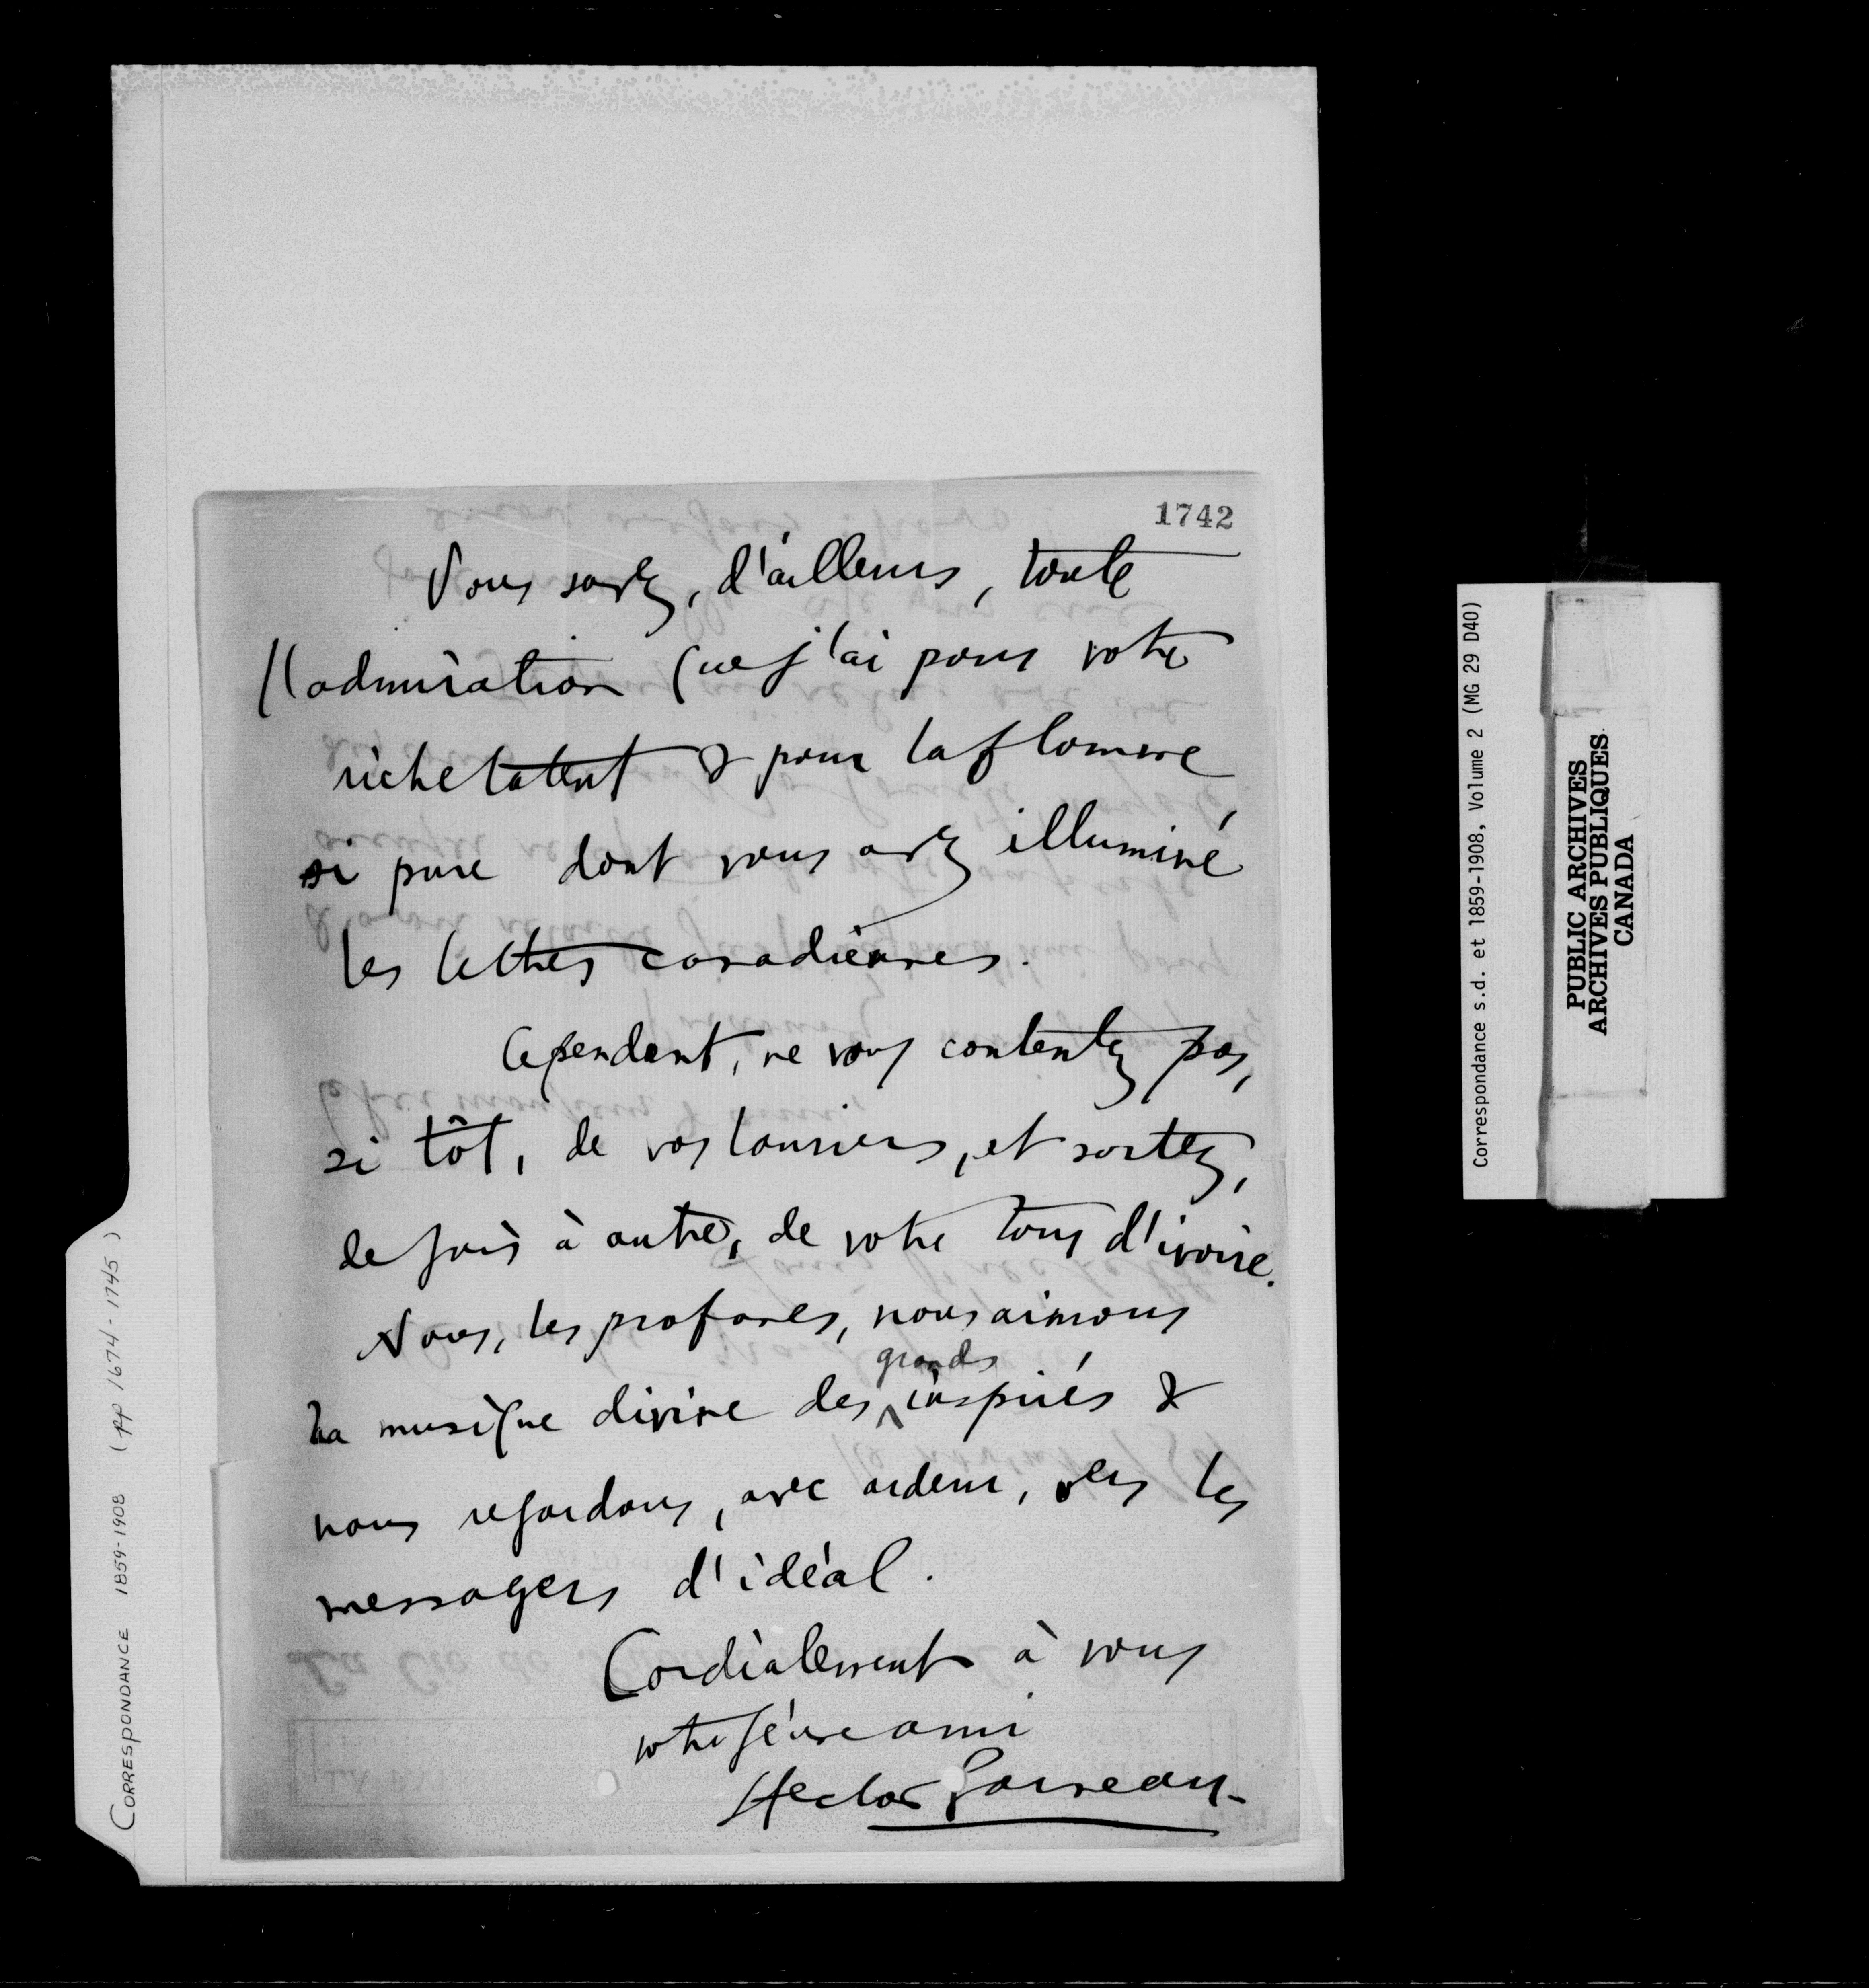 1742
Vous savez, d'ailleurs, toute
l'admiration que j'ai pour votre
riche talent & pour la flamme
si pure dont vous avez illuminé
les lettres canadiennes.
Cependant, ne vous contentez pas,
si tôt, de vos lauriers, et sortez,
de fois à autre, de votre tour d'ivoire.
Nous, les profanes, nous aimons
la musique divine des grands inspirés &
nous regardons, avec ardeur, vers les
messagers d'idéal.
Cordialement à vous
votre ami
Hector Garneau
CORRESPONDANCE 1859-1908 (pp 1674-1745)
Correspondance s.d. et 1859-1908, Volume 2 (MG 29 D40)
PUBLIC ARCHIVES
ARCHIVES PUBLIQUES
CANADA